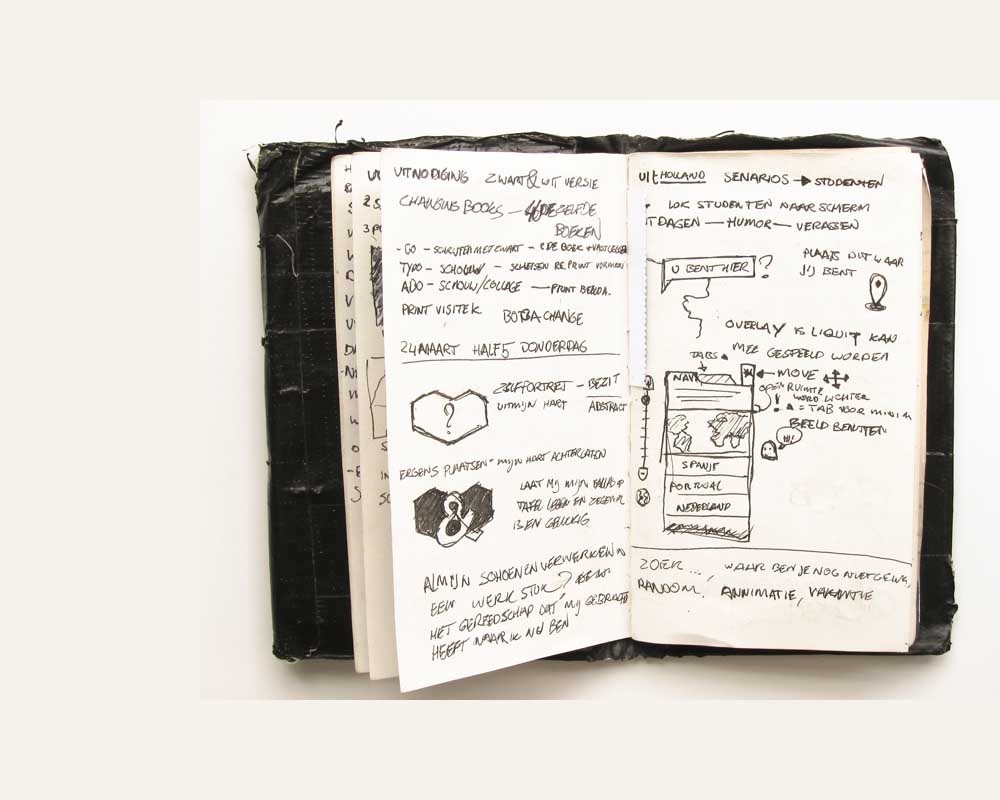 UITNODIGING ZWART & WIT VERSIE
CHANGING BOOKS — DEZELFDE
BOEKEN
- GO - SCHRIJTEN MET ZWART -
TYPO - SCHOUW - SCHETSEN RE PRINT VORMEN
ADO - SCHOUW/COLLAGE — PRINT BEELDA.
PRINT VISITEK.
CHANGE
24 MAART HALF 5 DONDERDAG
ZELFORTRET - BEZIT
UIT MIJN HART ABSTRACT
?
ERGENS PLAATSEN " MIJN HART ACHTERLATEN
LAAT MIJ MIJN OP
TAFEL LEGEN EN
BEN GELUKIG
AL MIJN SCHOENEN VERWERKEN IN
EEN WERK STUK
HET GEREEDSCHAP DAT MIJ GEBRACHT
HEEFT NAAR IK NU BEN
UIT HOLLAND SENARIOS → STUDENTEN
LOK STUDENTEN NAAR SCHERM
TDAGEN — HUMOR — VERASSEN
U BENT HIER ?
PLAATS DIT WAAR
JIJ BENT
OVERLAY IS LIQUIT KAN
MEE GESPEELD WORDEN
TABS
NAVI
← MOVE
OPEN RUIMTE
WORD LICHTER
= TAB VOOR MINIM
BEELD BENUTTEN
SPANJE
PORTUGAL
NEDERLAND
ZOEK..., WAAR BEN JE NOG NIET GEWE,
RANDOM, ANNIMATIE, VAKANTIE